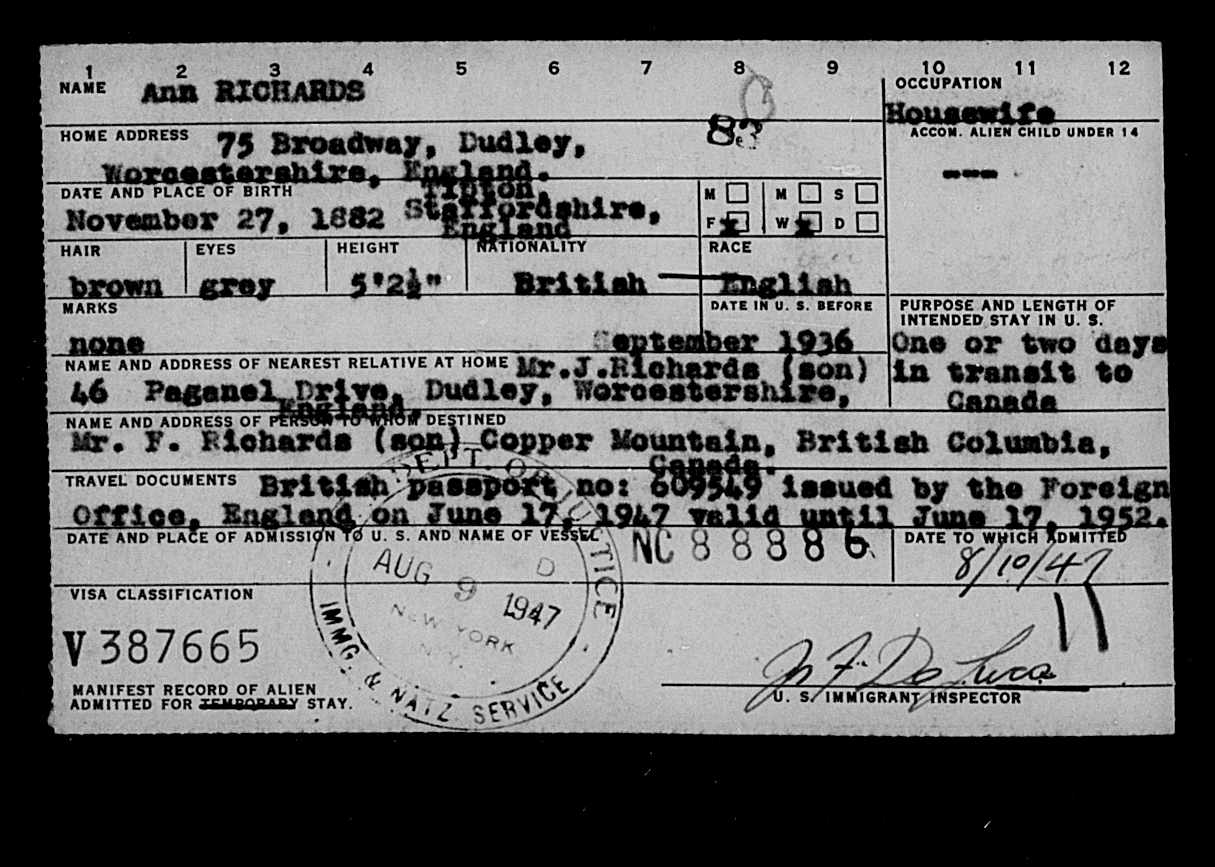 1 2 3 4 5 6 7 8 9 10 11 12
NAME Ann RICHARDS
OCCUPATION
Housewife
83
HOME ADDRESS 75 Broadway, Dudley,
Worcestershire, England.
ACCOM. ALIEN CHILD UNDER 14
---
DATE AND PLACE OF BIRTH Tipton,
November 27, 1882 Staffordshire,
England
M M S
F x W x D
HAIR EYES HEIGHT NATIONALITY RACE
brown grey 5'2½" British English
MARKS DATE IN U. S. BEFORE
none September 1936
PURPOSE AND LENGTH OF
INTENDED STAY IN U. S.
One or two days
in transit to
Canada
NAME AND ADDRESS OF NEAREST RELATIVE AT HOME Mr.J.Richards (son)
46 Paganel Drive, Dudley, Worcestershire,
England.
NAME AND ADDRESS OF PERSON TO WHOM DESTINED
Mr. F. Richards (son) Copper Mountain, British Columbia,
Canada.
TRAVEL DOCUMENTS British passport no: 609549 issued by the Foreign
Office, England on June 17, 1947 valid until June 17, 1952.
DATE AND PLACE OF ADMISSION TO U. S. AND NAME OF VESSEL
NC 88886
DATE TO WHICH ADMITTED
8/10/47
11
DEPT. OF JUSTICE
AUG 9 1947
D
NEW YORK
N.Y.
IMMG. & NATZ. SERVICE
VISA CLASSIFICATION
V387665
MANIFEST RECORD OF ALIEN
ADMITTED FOR TEMPORARY STAY.
U. S. IMMIGRANT INSPECTOR